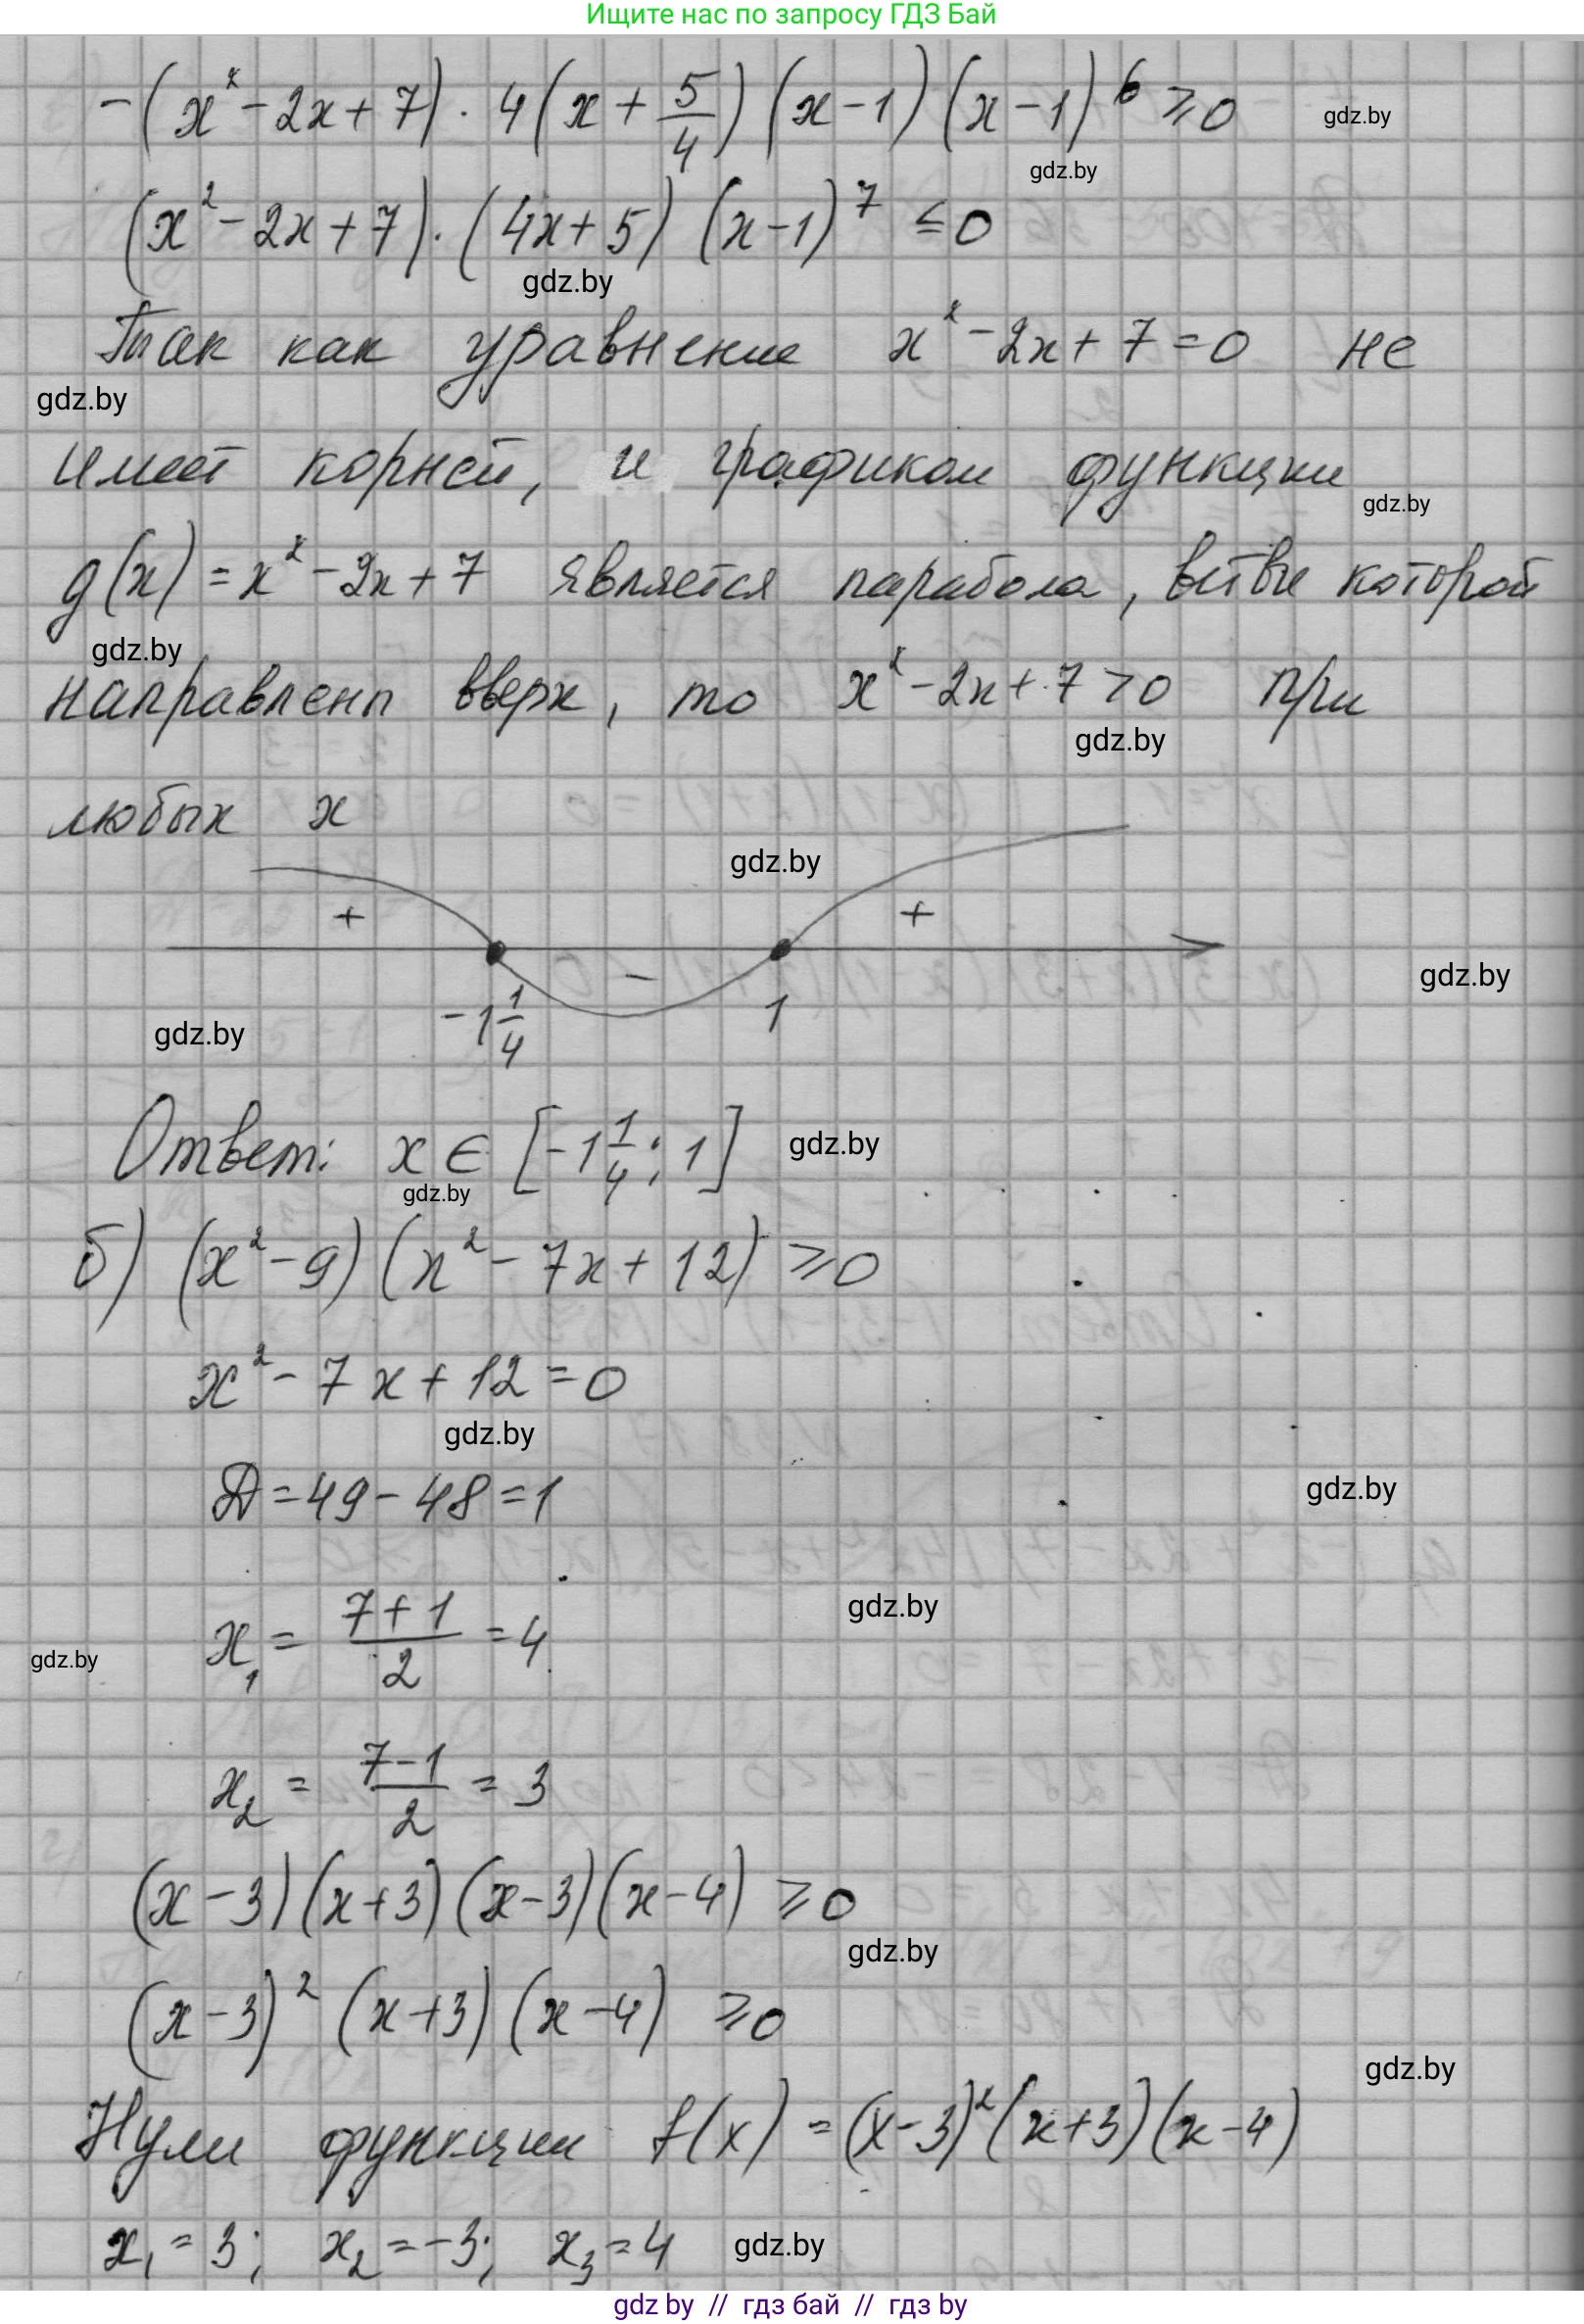 Ищите нас по запросу ГДЗ Бай
-(x² - 2x + 7) · 4(x + 5/4)(x - 1)(x - 1)⁶ ≥ 0
gdz.by
gdz.by
(x² - 2x + 7) · (4x + 5)(x - 1)⁷ ≤ 0
gdz.by
Так как уравнение x² - 2x + 7 = 0 не
gdz.by
имеет корней, и графиком функции
gdz.by
g(x) = x² - 2x + 7 является парабола, ветви которой
gdz.by
направлены вверх, то x² - 2x + 7 > 0 при
gdz.by
любых x
gdz.by
+ - +
gdz.by
-1 1/4 1
gdz.by
Ответ: x ∈ [-1 1/4; 1]
gdz.by
gdz.by
б) (x² - 9)(x² - 7x + 12) ≥ 0
x² - 7x + 12 = 0
gdz.by
D = 49 - 48 = 1
gdz.by
x₁ = (7 + 1)/2 = 4
gdz.by
gdz.by
x₂ = (7 - 1)/2 = 3
(x - 3)(x + 3)(x - 3)(x - 4) ≥ 0
gdz.by
(x - 3)² (x + 3)(x - 4) ≥ 0
gdz.by
Нули функции f(x) = (x - 3)²(x + 3)(x - 4)
x₁ = 3; x₂ = -3; x₃ = 4
gdz.by
gdz by // гдз бай // gdz by